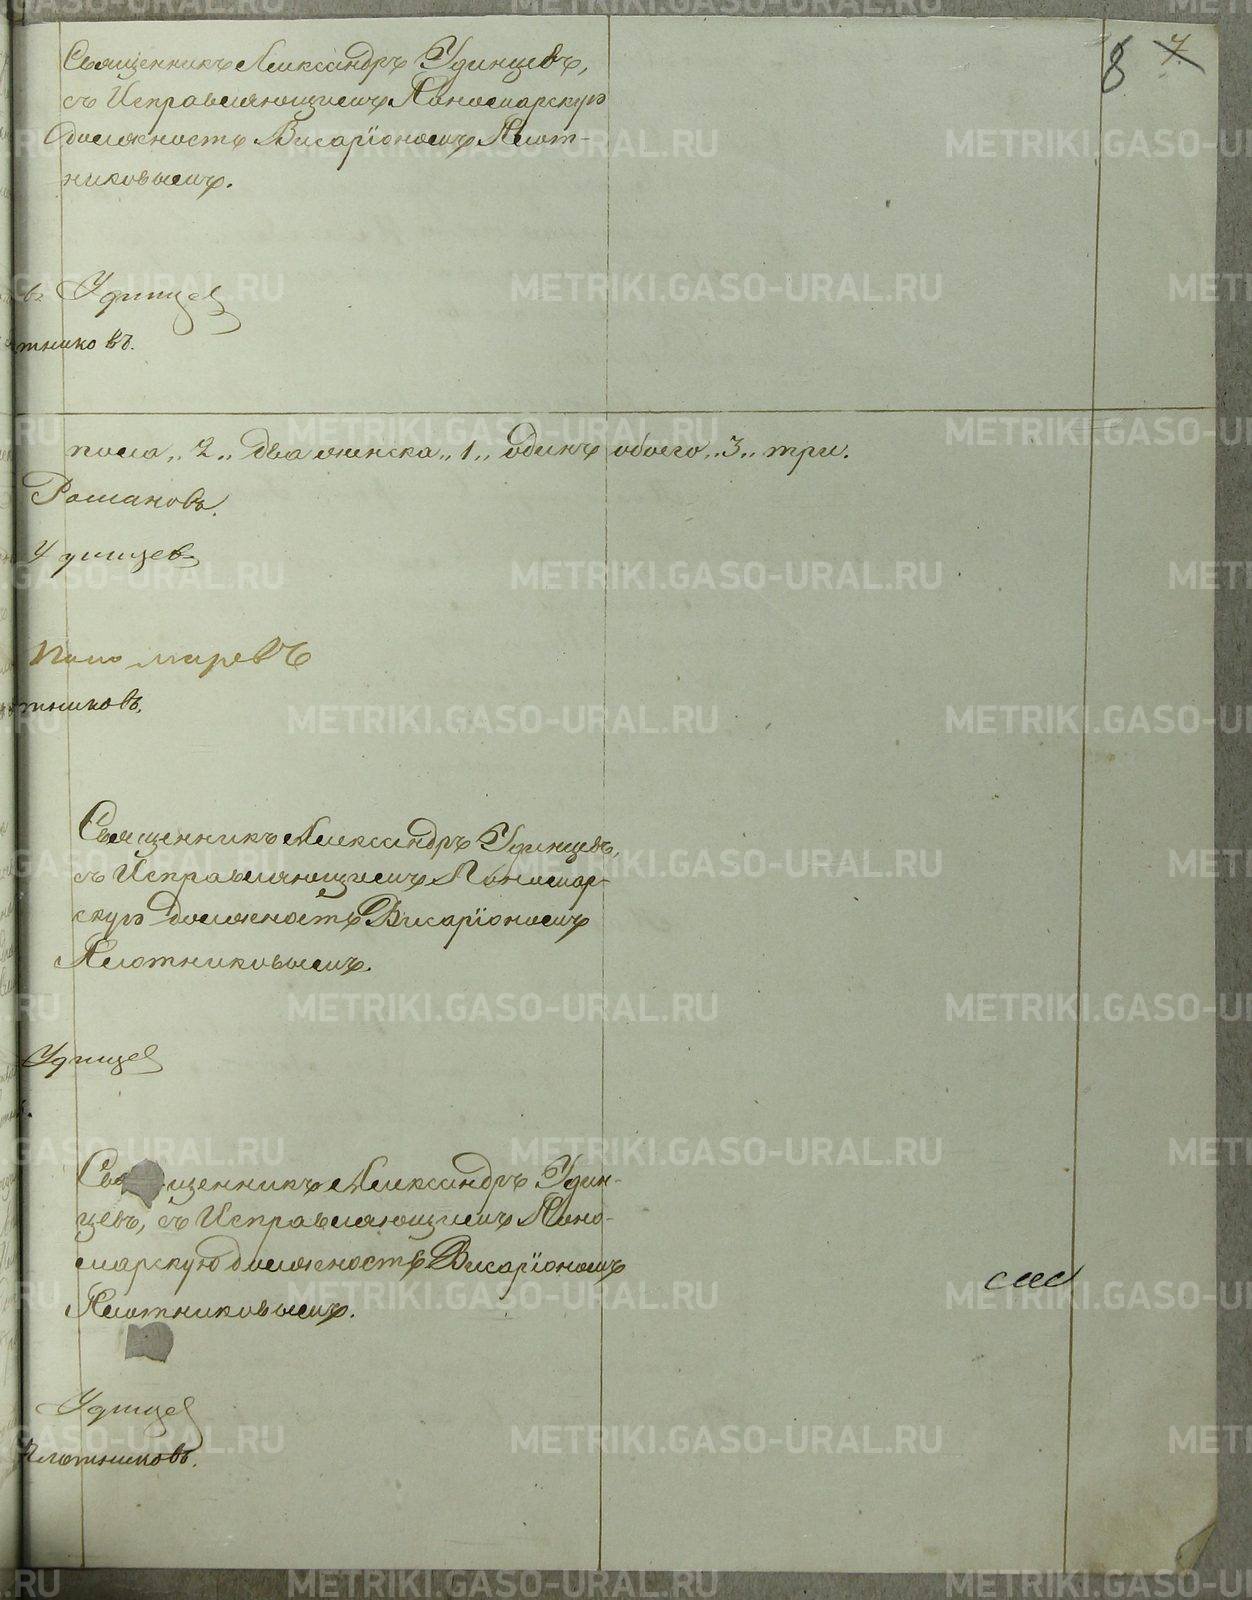 8 7
Священникъ Александръ Удинцевъ,
съ Исправляющимъ Пономарскую
должность Висаріономъ Плот-
никовымъ.
въ Удинцев
тниковъ.
пола „2„ два женска „1„ одинъ обоего „3„ три.
Романовъ.
Удинцевъ
Пономаревъ
тниковъ.
Священникъ Александръ Удинцевъ,
съ Исправляющимъ Пономар-
скую должность Висаріономъ
Плотниковымъ.
Удинцев
Священникъ Александръ Удин-
цевъ, съ Исправляющимъ Поно-
марскую должность Висаріономъ
Плотниковымъ.
Удинцев
Плотниковъ.
METRIKI.GASO-URAL.RU